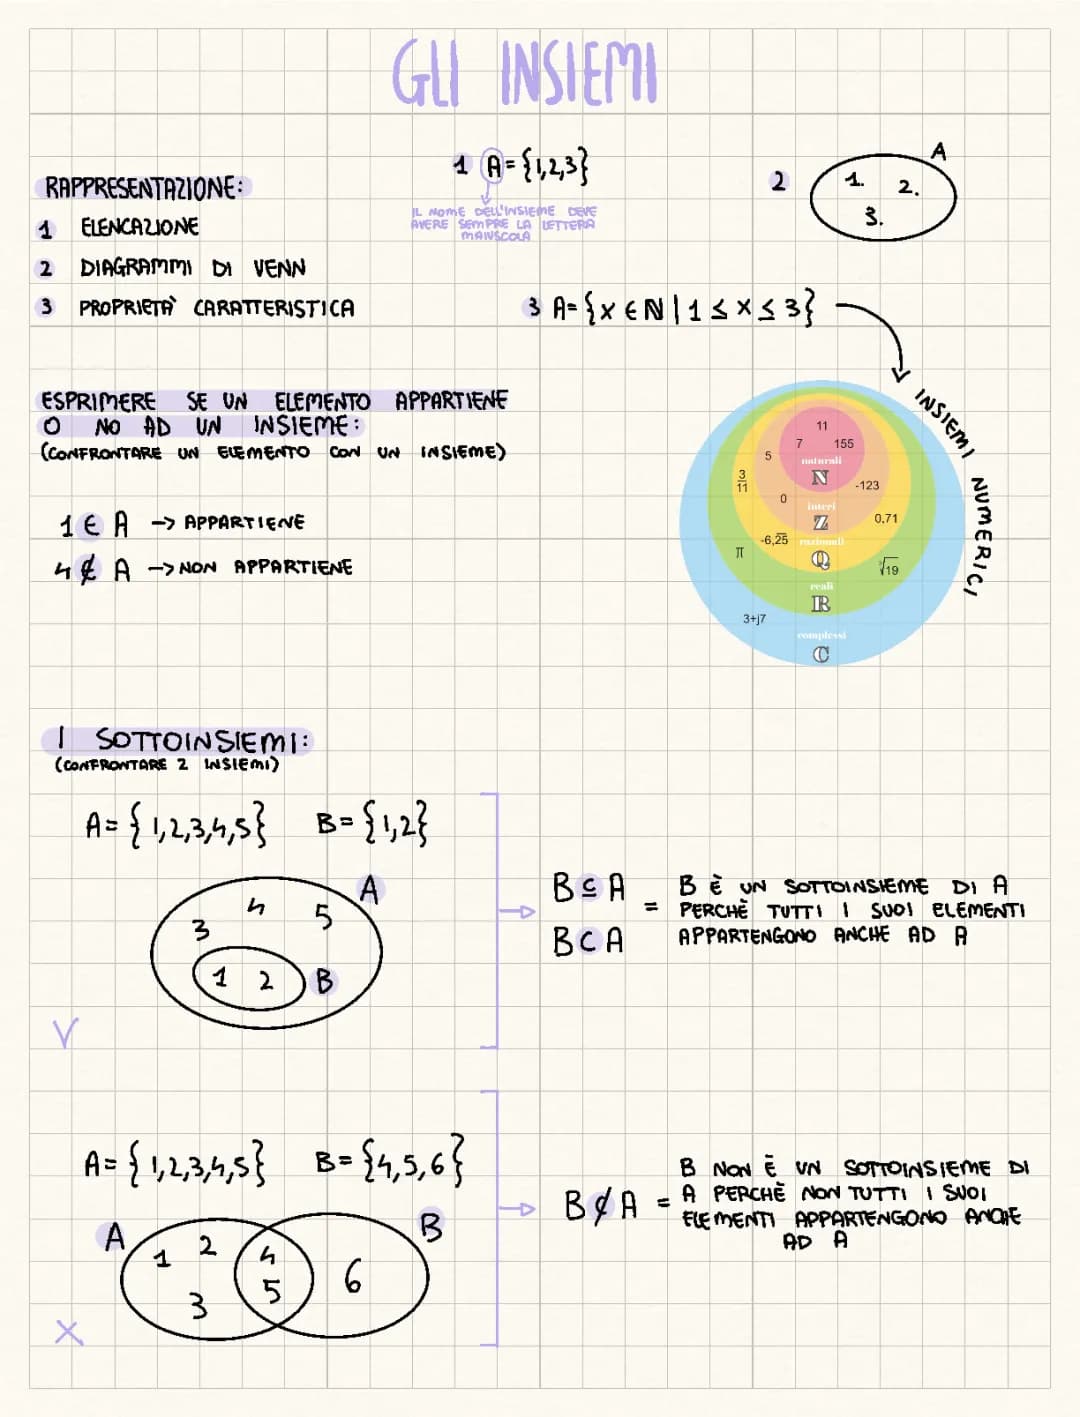 GLI INSIEMI
RAPPRESENTAZIONE:
1 ELENCAZIONE
2 DIAGRAMMI DI VENN
3 PROPRIETÀ CARATTERISTICA
1 A={1,2,3}
IL NOME DELL'INSIEME DEVE
AVERE SEMPRE LA LETTERA
MAIUSCOLA
2
A
1. 2.
3.
3 A={X∈N|1≤X≤3}
INSIEMI NUMERICI
ESPRIMERE SE UN ELEMENTO APPARTIENE
O NO AD UN INSIEME:
(CONFRONTARE UN ELEMENTO CON UN INSIEME)
1 ∈ A -> APPARTIENE
4 ∉ A -> NON APPARTIENE
11
7 155
naturali
N
5
3/11
-123
0
interi
Z
0,71
-6,25
razionali
Q
π
√19
reali
R
3+j7
complessi
C
I SOTTOINSIEMI:
(CONFRONTARE 2 INSIEMI)
A={1,2,3,4,5} B={1,2}
A
4
3 5
1 2 B
V
B⊆A
B⊂A
=
B È UN SOTTOINSIEME DI A
PERCHÈ TUTTI I SUOI ELEMENTI
APPARTENGONO ANCHE AD A
A={1,2,3,4,5} B={4,5,6}
A B
1 2 4
3 5 6
X
B⊄A =
B NON È UN SOTTOINSIEME DI
A PERCHÈ NON TUTTI I SUOI
ELEMENTI APPARTENGONO ANCHE
AD A